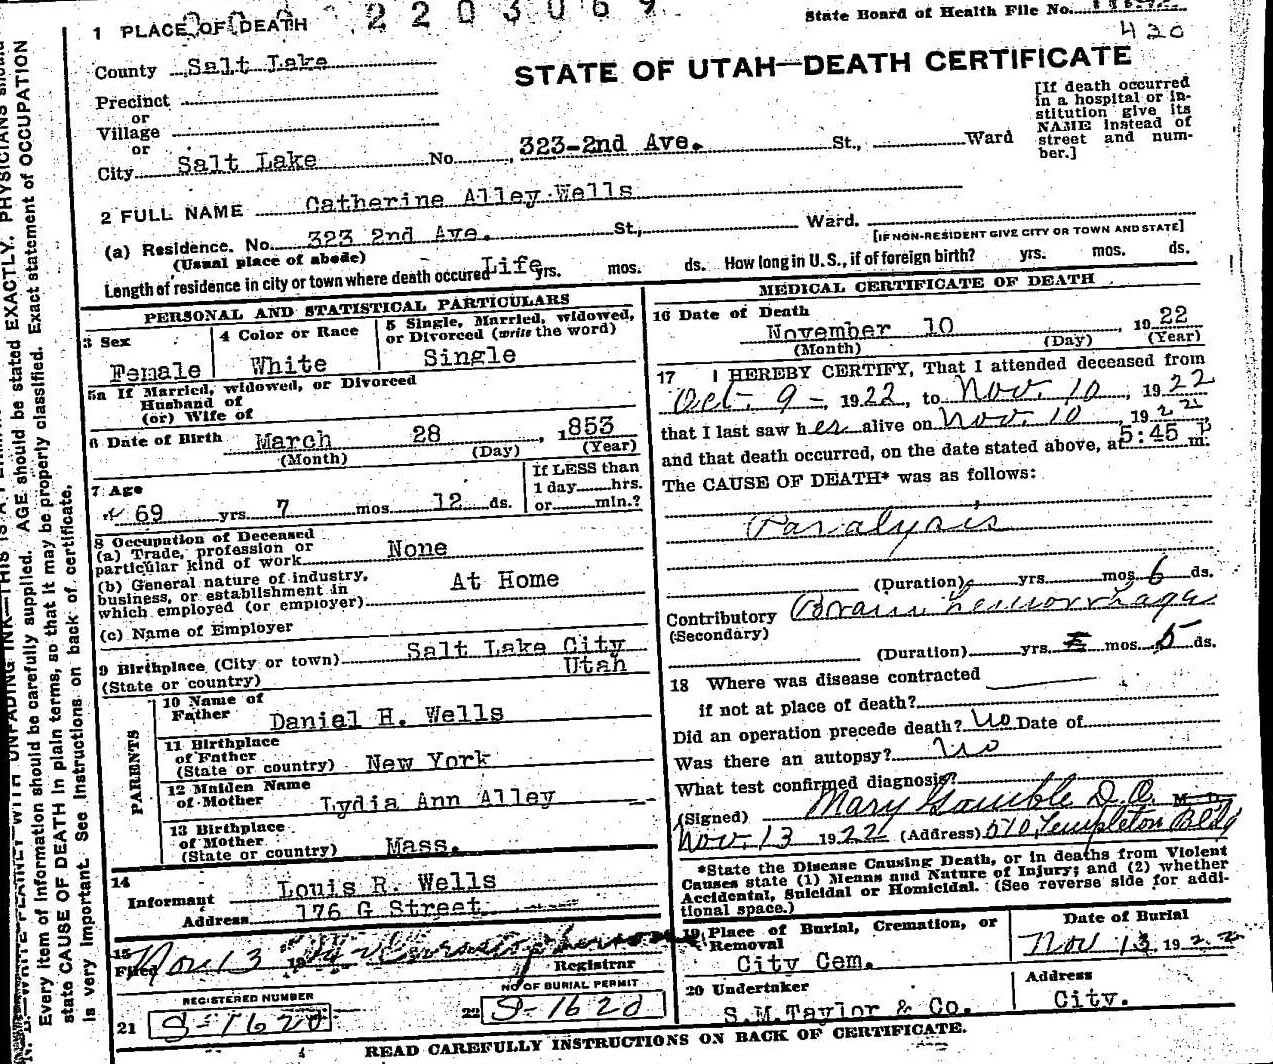 2203069
State Board of Health File No.
420
1 PLACE OF DEATH
County Salt Lake
STATE OF UTAH—DEATH CERTIFICATE
Precinct
or
Village
or
City Salt Lake No. 323-2nd Ave. St., Ward
[If death occurred
in a hospital or in-
stitution give its
NAME instead of
street and num-
ber.]
2 FULL NAME Catherine Alley Wells
(a) Residence. No. 323 2nd Ave. St., Ward.
(Usual place of abode)
[IF NON-RESIDENT GIVE CITY OR TOWN AND STATE]
Length of residence in city or town where death occured Life yrs. mos. ds. How long in U.S., if of foreign birth? yrs. mos. ds.
PERSONAL AND STATISTICAL PARTICULARS
3 Sex
Female
4 Color or Race
White
5 Single, Married, widowed,
or Divorced (write the word)
Single
5a If Married, widowed, or Divorced
Husband of
(or) Wife of
6 Date of Birth March 28, 1853
(Month) (Day) (Year)
7 Age
69 yrs. 7 mos. 12 ds.
If LESS than
1 day hrs.
or min.?
8 Occupation of Deceased
(a) Trade, profession or
particular kind of work None
(b) General nature of industry,
business, or establishment in
which employed (or employer) At Home
(c) Name of Employer
9 Birthplace (City or town) Salt Lake City
(State or country) Utah
PARENTS
10 Name of
Father Daniel H. Wells
11 Birthplace
of Father
(State or country) New York
12 Maiden Name
of Mother Lydia Ann Alley
13 Birthplace
of Mother
(State or country) Mass.
14
Informant Louis R. Wells
Address 176 G Street
15
Filed Nov 13 19
Registrar
REGISTERED NUMBER
21 S-1620
NO OF BURIAL PERMIT
22 S-1620
MEDICAL CERTIFICATE OF DEATH
16 Date of Death
November 10, 1922
(Month) (Day) (Year)
17 I HEREBY CERTIFY, That I attended deceased from
Oct. 9-, 1922, to Nov. 10, 1922
that I last saw her alive on Nov. 10, 1922,
and that death occurred, on the date stated above, at 5:45 P m.
The CAUSE OF DEATH* was as follows:
Paralysis
(Duration) yrs. mos. 6 ds.
Contributory Brain hemorrhage
(Secondary)
(Duration) yrs. mos. 5 ds.
18 Where was disease contracted
if not at place of death?
Did an operation precede death? No Date of
Was there an autopsy? No
What test confirmed diagnosis?
(Signed) Mary Gamble D.O. M. D.
Nov. 13 1922 (Address) 510 Templeton Bldg
*State the Disease Causing Death, or in deaths from Violent
Causes state (1) Means and Nature of Injury; and (2) whether
Accidental, Suicidal or Homicidal. (See reverse side for addi-
tional space.)
19 Place of Burial, Cremation, or
Removal
City Cem.
Date of Burial
Nov 13 1922
20 Undertaker
S.M. Taylor & Co.
Address
City.
READ CAREFULLY INSTRUCTIONS ON BACK OF CERTIFICATE.
Every item of information should be carefully supplied. AGE should be stated EXACTLY. PHYSICIANS should
state CAUSE OF DEATH in plain terms, so that it may be properly classified. Exact statement of OCCUPATION
is very important. See instructions on back of certificate.